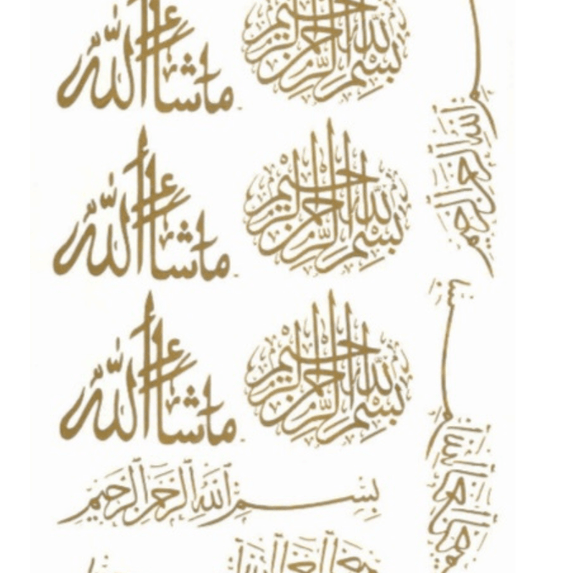 ما شاء الله
بسم الله الرحمن الرحيم
بسم الله الرحمن الرحيم
ما شاء الله
بسم الله الرحمن الرحيم
ما شاء الله
بسم الله الرحمن الرحيم
بسم الله الرحمن الرحيم
بسم الله الرحمن الرحيم